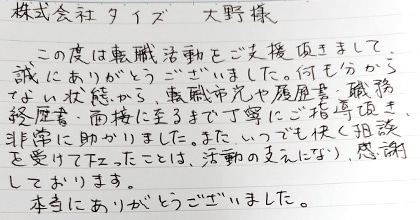 株式会社タイズ 大野様
この度は転職活動をご支援頂きまして、
誠にありがとうございました。何も分から
ない状態から、転職市況や履歴書・職務
経歴書・面接に至るまで丁寧にご指導頂き、
非常に助かりました。また、いつでも快く相談
を受けて下さったことは、活動の支えになり、感謝
しております。
本当にありがとうございました。